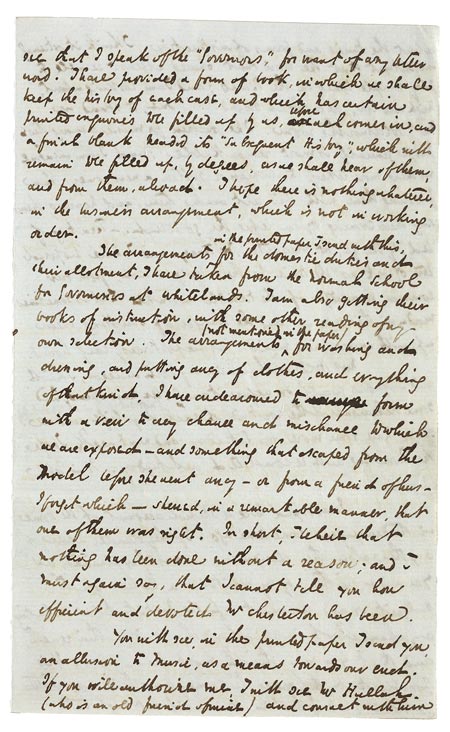 see that I speak of the "Governors," for want of any better
word. I have provided a form of book, in which we shall
keep the history of each case, and which has certain
printed enquiries to be filled up, by us, when each comes in, and
a final blank headed its "subsequent History," which will
remain to be filled up, by degrees, as we shall hear of them,
and from them, abroad. I hope there is nothing whatever
in the business arrangement, which is not in working
order.
in the printed paper I send with this,
The arrangements for the domestic duties and
their allotment, I have taken from the Normal School
for Governesses at Whitelands. I am also getting their
books of instruction, with some other reading of my
(not mentioned in the paper)
own selection. The arrangements for washing and
dressing, and putting away of clothes, and everything
of that kind, I have endeavoured to form
with a view to every chance and mischance to which
we are exposed – and something that escaped from the
Model before she went away – or from a friend of hers –
I forget which – shewed, in a remarkable manner, that
one of them was right. In short, I believe that
nothing has been done without a reason; and I
must again say, that I cannot tell you how
efficient and devoted Mr Chesterton has been.
You will see, in the printed paper I send you,
an allusion to Music, as a means towards our end.
If you will authorize me, I will see Mr Hullah
(who is an old friend of mine) and consult with him